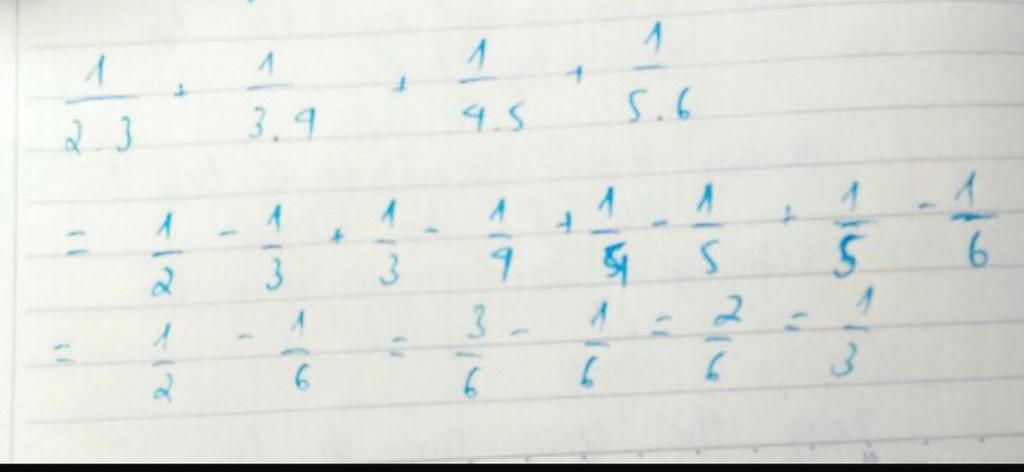 1/2.3 + 1/3.4 + 1/4.5 + 1/5.6
= 1/2 - 1/3 + 1/3 - 1/4 + 1/4 - 1/5 + 1/5 - 1/6
= 1/2 - 1/6 = 3/6 - 1/6 = 2/6 = 1/3